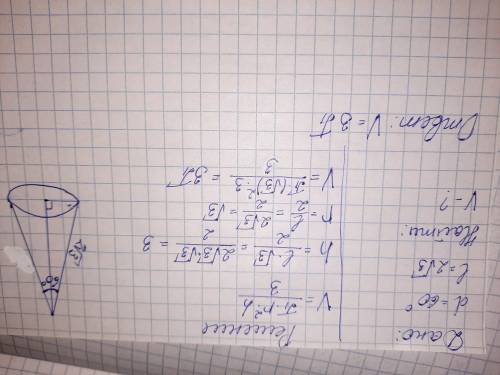 Дано:
α = 60°
l = 2√3
Найти:
V - ?
Решение
V = π · r² · h / 3
h = l√3 / 2 = 2√3 · √3 / 2 = 3
r = l / 2 = 2√3 / 2 = √3
V = π · (√3)² · 3 / 3 = 3π
Ответ: V = 3π
60°
2√3